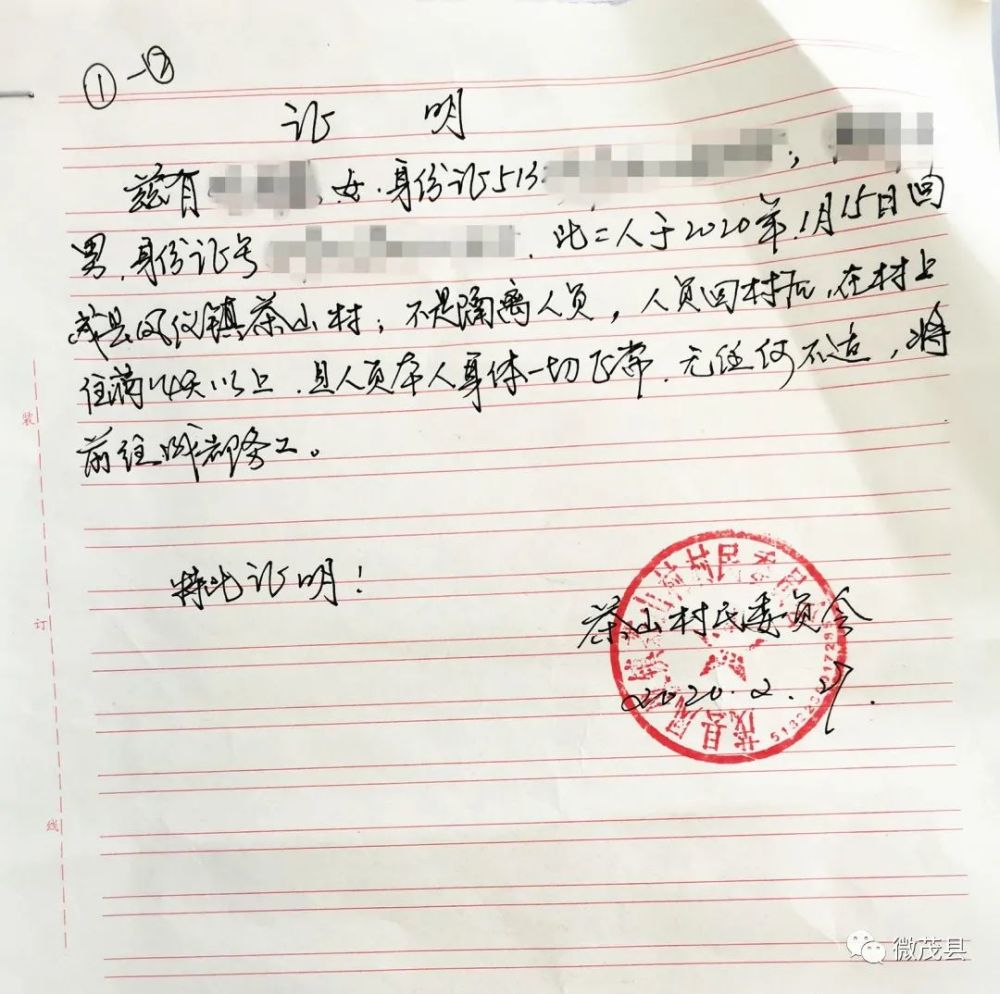 ①-②
证 明
兹有 、女、身份证513 ;
男、身份证号 . 此二人于2020年1月15日回
茂县凤仪镇茶山村;不是隔离人员,人员回村后,在村上
住满14天以上.且人员本人身体一切正常.无任何不适,将
前往成都务工。
特此证明!
茶山村民委员会
2020.2.27.
茂县凤仪镇茶山村村民委员会
装
订
线
微茂县